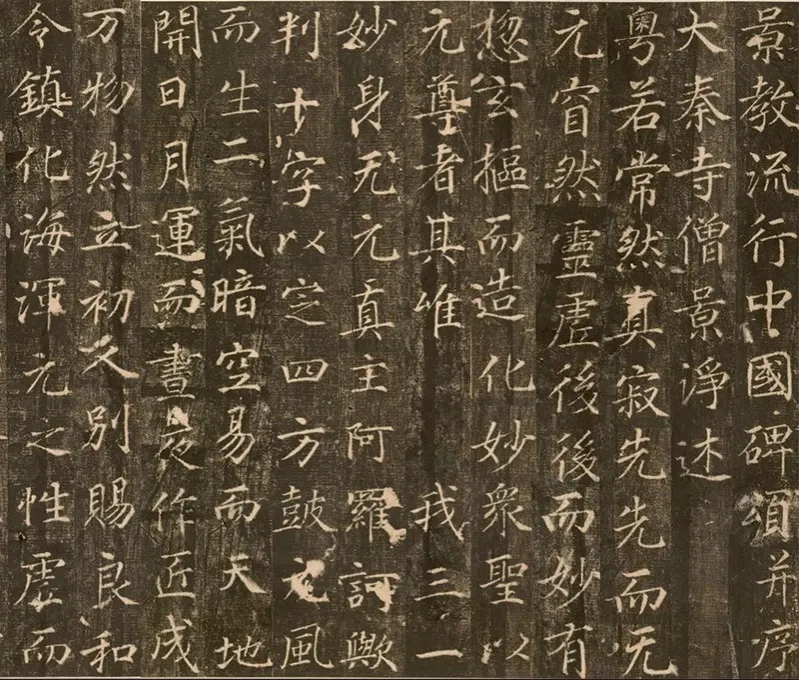 景教流行中國碑頌并序
大秦寺僧景淨述
粵若常然真寂先先而无
元窅然靈虛後後而妙有
惣玄摳而造化妙衆聖以
元尊者其唯　我三一
妙身无元真主阿羅訶歟
判十字以定四方鼓元風
而生二氣暗空易而天地
開日月運而晝夜作匠成
万物然立初人別賜良和
令鎮化海渾元之性虛而